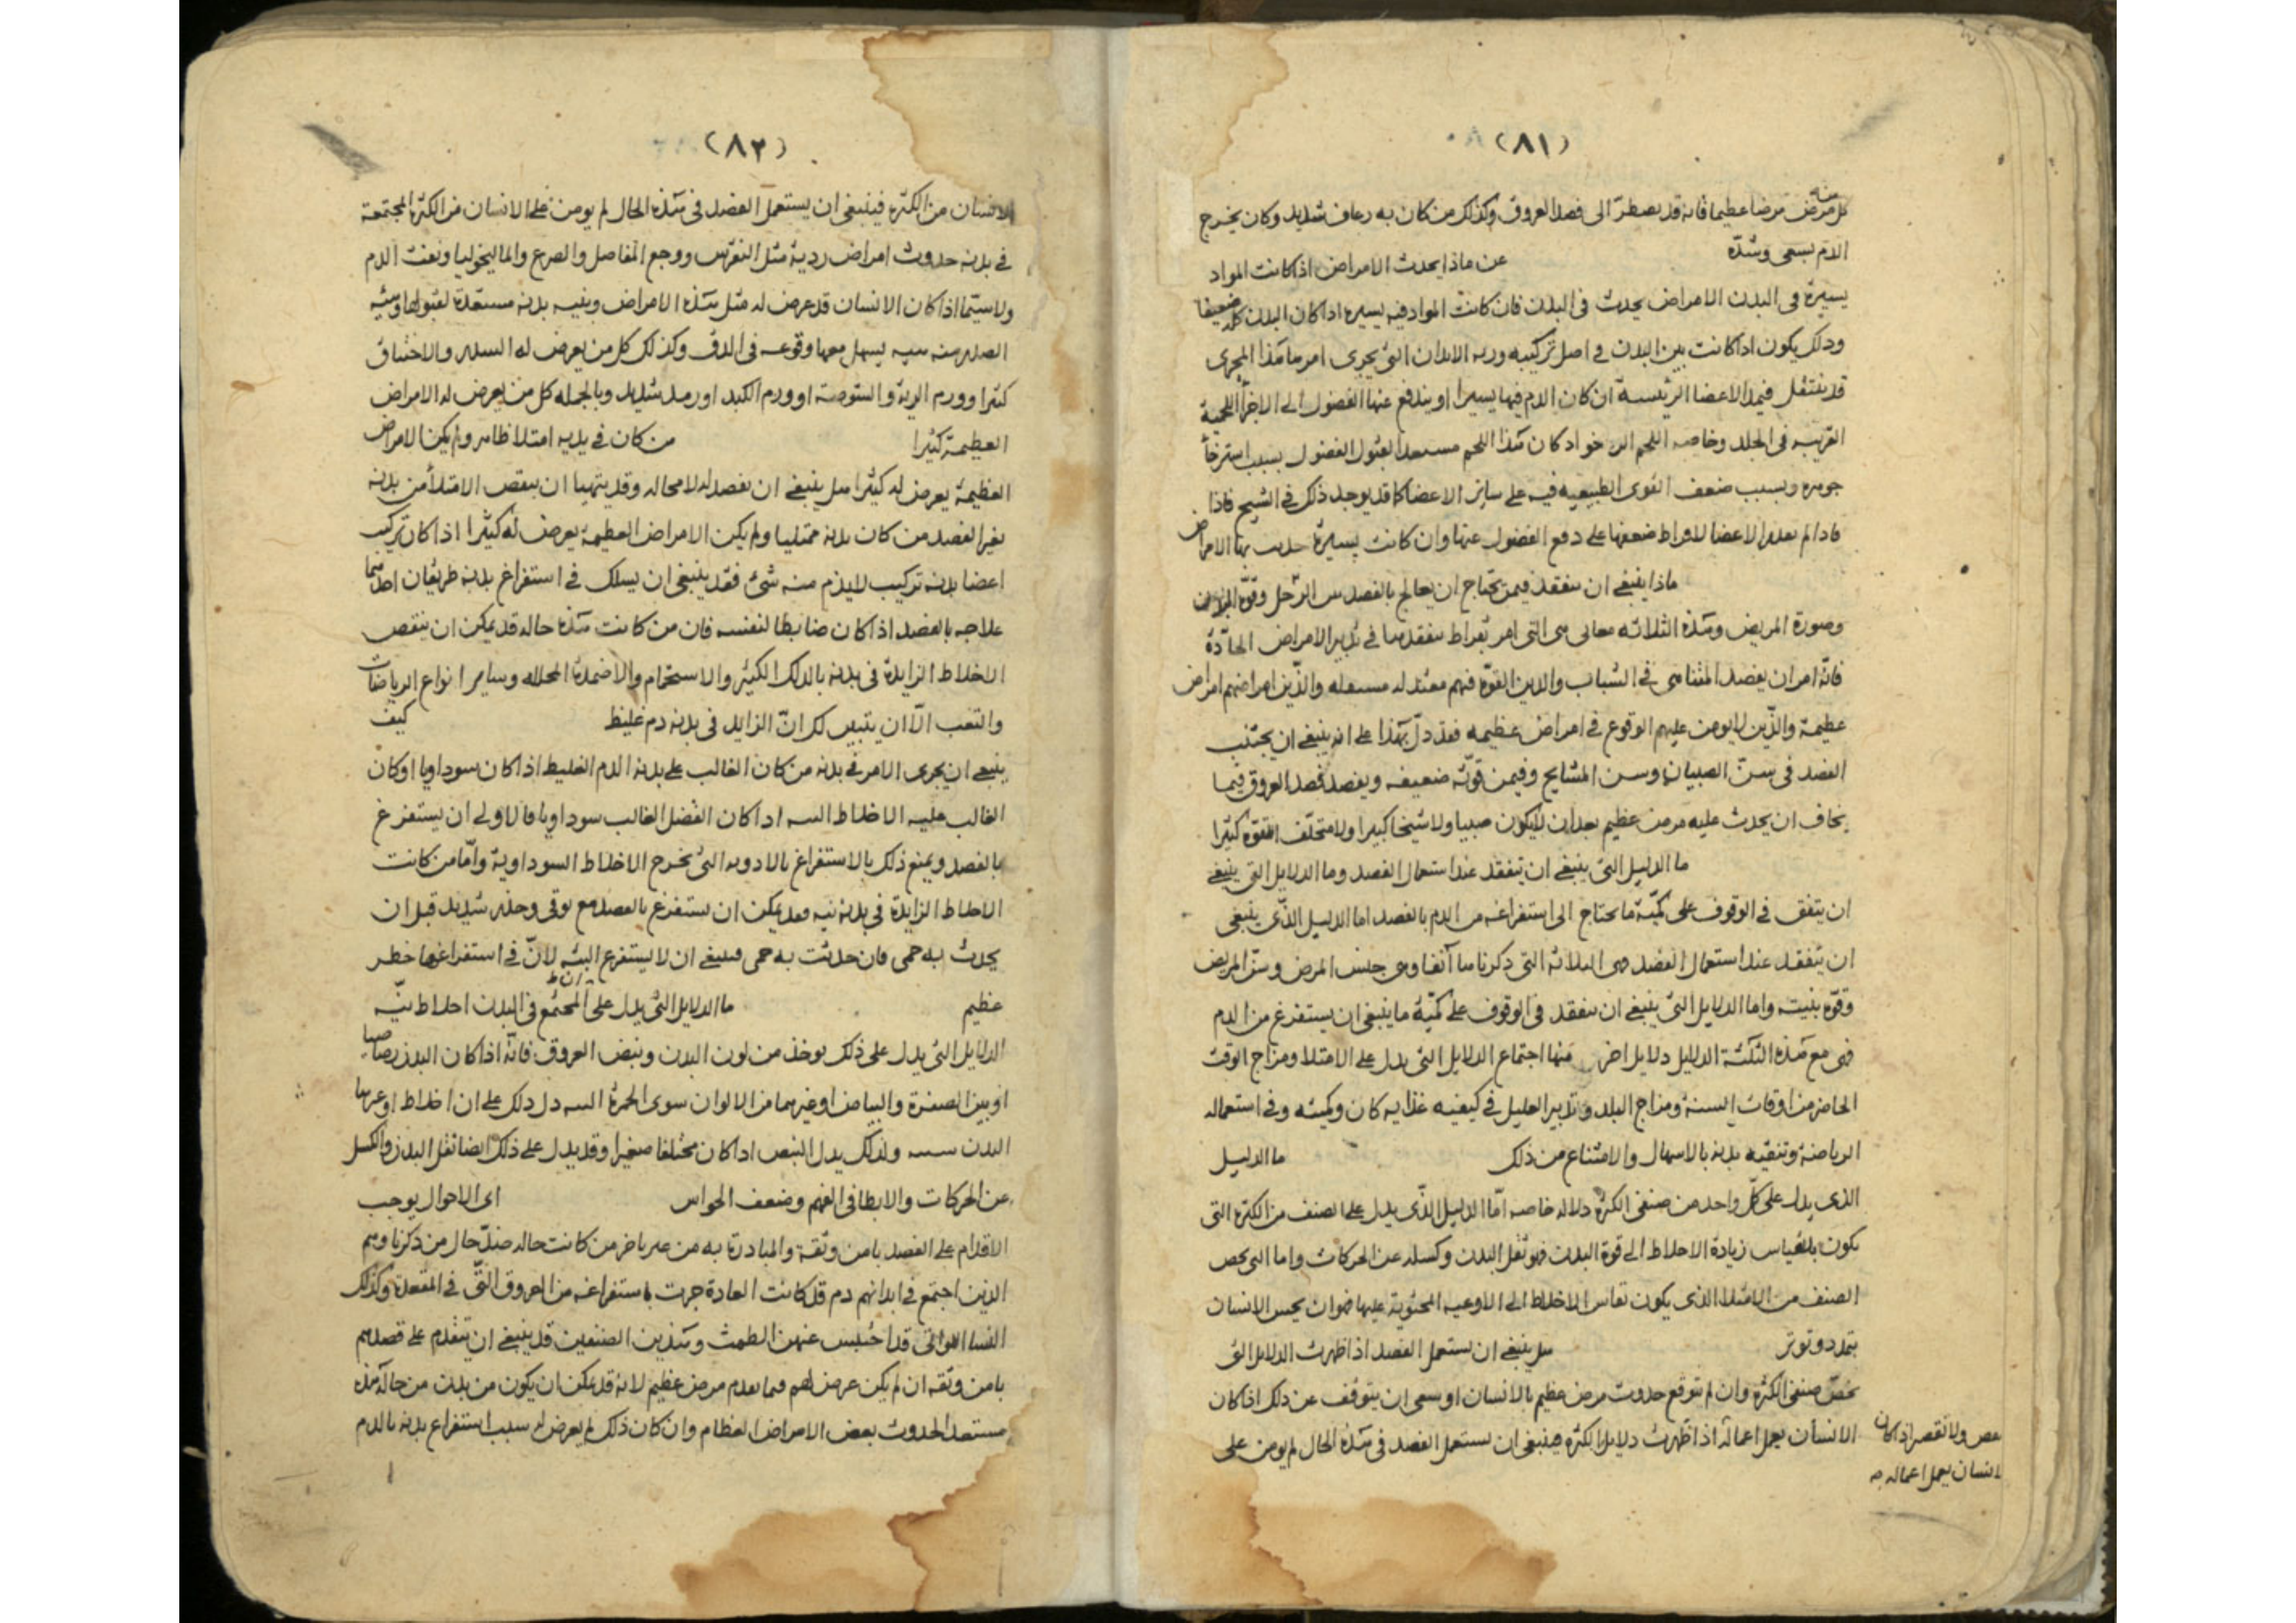 (٨١)
كل مرض مرضا عظيما فانه قد يضطر الى فصد العروق وكذلك من كان به رعاف شديد وكان يخرج
منه
الدم بسعى وشدّه عن ماذا يحدث الامراض اذا كانت المواد
يسيرة فى البدن الامراض يحدث فى البدن فان كانت المواد فيه يسيرة اذا كان البدن كله ضعيفا
وذلك يكون اذا كانت بين البدن فى اصل تركيبه الابدان التى يجرى امرها هذا المجرى
قد ينتقل فيها الاعضا الرئيسة ان كان الدم فيها يسيرا او يندفع عنها الفضول الى الاجزأ اللحمية
القريبه فى الجلد وخاصه اللحم الرخو اذ كان هذا اللحم مستعدا لقبول الفضول بسبب استرخأ
جوهره وبسبب ضعف القوى الطبيعيه فيه على ساير الاعضا كما قد يوجد ذلك فى الشيخ فاذا
فاذا لم الاعضا لافراط ضعفها على دفع الفضول عنها وان كانت يسيرة حدث بها الامراض
ماذا ينبغى ان يتفقد فيمن يحتاج ان يعالج بالفصد سن الرّجل وقوّة
وصورة المريض وهذه الثلاثه معانى هى التى امر بقراط بتفقدها فى تدبير الامراض الحادّة
فانّه امر ان يفصد المتناهى فى الشباب والذين القوّه فيهم والذّين امراضهم امراض
عظيمة والذّين لا يومن عليهم الوقوع فى امراض عظيمه فقد دلّ بهذا على انه ينبغى ان يجتنب
الفصد فى سنّ الصبيان وسن المشايخ وفيمن قوّته ضعيفه ويفصد فصد العروق فيما
يخاف ان يحدث عليه مرض عظيم بعد ان لا يكون صبيا ولا شيخا كبيرا ولا متخلّف القوّه كثيرا
ما الدليل التى ينبغى ان يتفقد عند استعمال الفصد وما الدلايل التى ينبغى
ان يتفق فى الوقوف على كميّة ما يحتاج الى استفراغه من الدم بالفصد اما الدليل الذّى ينبغى
ان يتفقد عند استعمال الفصد هى الثلاثه التى ذكرناها آنفا وهى جنس المرض وسنّ المريض
وقوّه بنيته واما الدلايل التى ينبغى ان يتفقد فى الوقوف على كميّة ما ينبغى ان يستفرغ من الدم
فهى مع هذه الثلثة الدليل دلايل اخر منها اجتماع الدلايل التى يدل على الامتلا ومزاج الوقت
الحاضر من اوقات السنة ومزاج البلد وتدبير العليل فى كيفيه غذايه كان وكميته وفى استعماله
الرياضة وتنقيه بدنه بالاسهال والامتناع من ذلك ما الدليل
الذى يدل على كلّ واحد من صنفى الكثرة دلاله خاصه امّا الدليل الذّى يدل على الصنف من الكثرة التى
يكون بالقياس زيادة الاخلاط الى قوة البدن فهو ثقل البدن وكسله عن الحركات واما التى يخص
الصنف من الامتلا الذى يكون تقاس الاخلاط الى الاوعيه المحتوية عليها فهو ان يحس الانسان
بتمدد وتوتر هل ينبغى ان يستعمل الفصد اذا ظهرت الدلايل التى
يخصّ صنفى الكثرة وان لم يتوقع حدوث مرض عظيم بالانسان او ينبغى ان يتوقف عن ذلك اذا كان
الانسان يعمل اعماله اذا ظهرت دلايل الكثره فينبغى ان يستعمل الفصد فى هذه الحال لم يومن على
ولا نقص اذا كان
لانسان يعمل اعماله
(٨٢)
الانسان من الكثرة فينبغى ان يستعمل الفصد فى هذه الحال لم يومن على الانسان من الكثرة المجتمعة
فى بدنه حدوث امراض ردية مثل النقرس ووجع المفاصل والصرع والماليخوليا ونفث الدم
ولا سيّما اذا كان الانسان قد عرض له مثل هذه الامراض وبنيه بدنه مستعدّة لقبولها وبنيه
الصدر منه يسهل معها وقوعه فى الدق وكذلك كل من يعرض له السدر والاختناق
كثيرا وورم الرية والشوصة او ورم الكبد او رمد شديد وبالجمله كل من يعرض له الامراض
العظيمة كثيرا من كان فى بدنه امتلا ظاهر ولم يكن الامراض
العظيمة يعرض له كثيرا هل ينبغى ان نفصد له لا محاله وقد يتهيا ان ينقص الامتلأ من بدنه
بغير الفصد من كان بدنه ممتليا ولم يكن الامراض العظيمة يعرض له كثيرا اذا كان تركيب
اعضا بدنه تركيب لا يذم منه شئ فقد ينبغى ان يسلك فى استفراغ بدنه طريقان احدهما
علاجه بالفصد اذا كان ضابطا لنفسه فان من كانت هذه حاله قد يمكن ان ينقص
الاخلاط الزايدة فى بدنه بالدلك الكثير والاستحمام والاضمدة المحلله وساير انواع الرياضات
والتعب الّا ان يتبين لك انّ الزايد فى بدنه دم غليظ كيف
ينبغى ان يجرى الامر فى بدنه من كان الغالب على بدنه الدم الغليظ اذا كان سوداويا او كان
الغالب عليه الاخلاط النيه اذا كان الفضل الغالب سوداويا فالاولى ان يستفرغ
بالفصد ويمنع ذلك بالاستفراغ بالادويه التى يخرج الاخلاط السوداوية وامّا من كانت
الاخلاط الزايدة فى بدنه نيه فقد يمكن ان يستفرغ بالفصد مع توقى وحذر شديد قبل ان
يحدث به حمى فان حدثت به حمى فينبغى ان لا يستفرغ البته لانّ فى استفراغها خطر
عظيم ما الدلايل التى يدل على ان المجتمع فى البدن اخلاط نيّه
الدلايل التى يدل على ذلك يوخذ من لون البدن ونبض العروق فانّه اذا كان البدن رصاصيا
او بين الصفرة والبياض او غيرهما من الالوان سوى الحمرة البته دل ذلك على ان اخلاط
البدن نيه ولذلك يدل النبض اذا كان مختلفا صغيرا وقد يدل على ذلك ايضا ثقل البدن والكسل
عن الحركات والابطا فى الفهم وضعف الحواس اى الاحوال يوجب
الاقدام على الفصد بامن وثقة والمبادرة به من كانت حاله حال من ذكرنا وهم
الذين اجتمع فى ابدانهم دم قد كانت العادة جرت باستفراغه من العروق التّى فى المقعدة وكذلك
النسا اللواتى قد احتبس عنهن الطمث وهذين الصنفين قد ينبغى ان يتقدم على فصدهم
بامن وثقه ان لم يكن عرض لهم فيما تقدم مرض عظيم لانه قد يمكن ان يكون من بدن من حاله هذه
مستعد الحدوث بعض الامراض العظام وان كان ذلك لم يعرض له سبب استفراغ بدنه بالدم